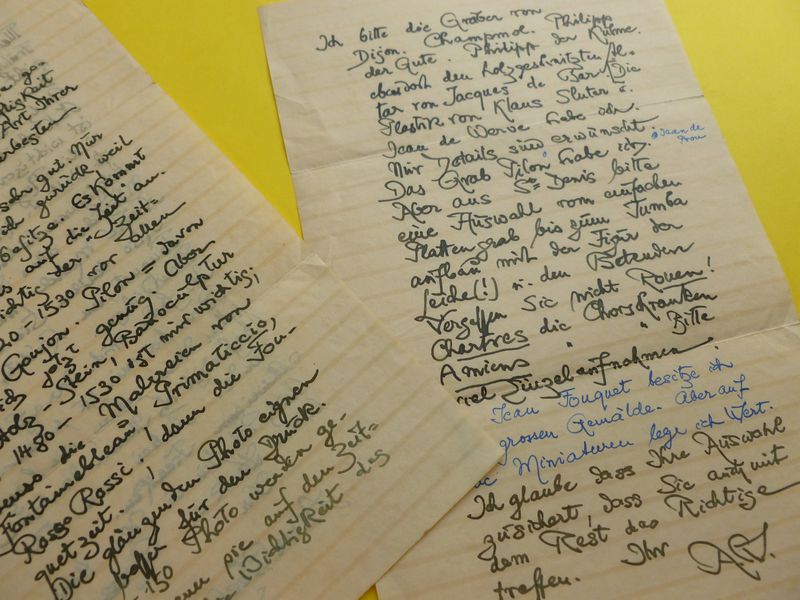 ge=
Art Ihrer
sehr gut. Nur
zurück weil
besitze. Es kommt
auf die Zeit an.
der "Zeit=
20 - 1530 vor allem
Goujon. Pilon = davon
jetzt genug. Aber
Holz - Stein, Barockulptur
1480 - 1530 ist mir wichtig,
die Malereien von
Fontainebleau, Primaticcio,
Rosso Rossi! dann die Fou=
quetzeit.
Die glänzenden Photo eignen
besser für den Druck.
150 Photo werden ge=
sie auf den Zeit=
Wichtigkeit des
Ich bitte die Gräber von
Dijon. Champmol. Philipp
der Gute. Philipp der Kühne.
ebendoch den holzgeschnitzten Al=
tar von Jacques de Bar! Die
Plastik von Klaus Sluter u.
Jean de Werve habe ich.
Nur Details sind erwünscht
Jean de
Das Grab Pilon habe ich.
Aber aus St Denis bitte
eine Auswahl vom einfachen
Plattengrab bis zum Tumba
aufbau mit der Figur der
Leiche(!) u. den Betenden
Vergessen Sie nicht Rouen!
Chartres die Chorschranken
Amiens " " Bitte
viel Einzelaufnahmen!
Jean Fouquet besitze ich
grossen Gemälde. Aber auf
Miniaturen lege ich Wert.
Ich glaube dass Ihre Auswahl
zusichert, dass Sie auch mit
dem Rest das Richtige
treffen. Ihr